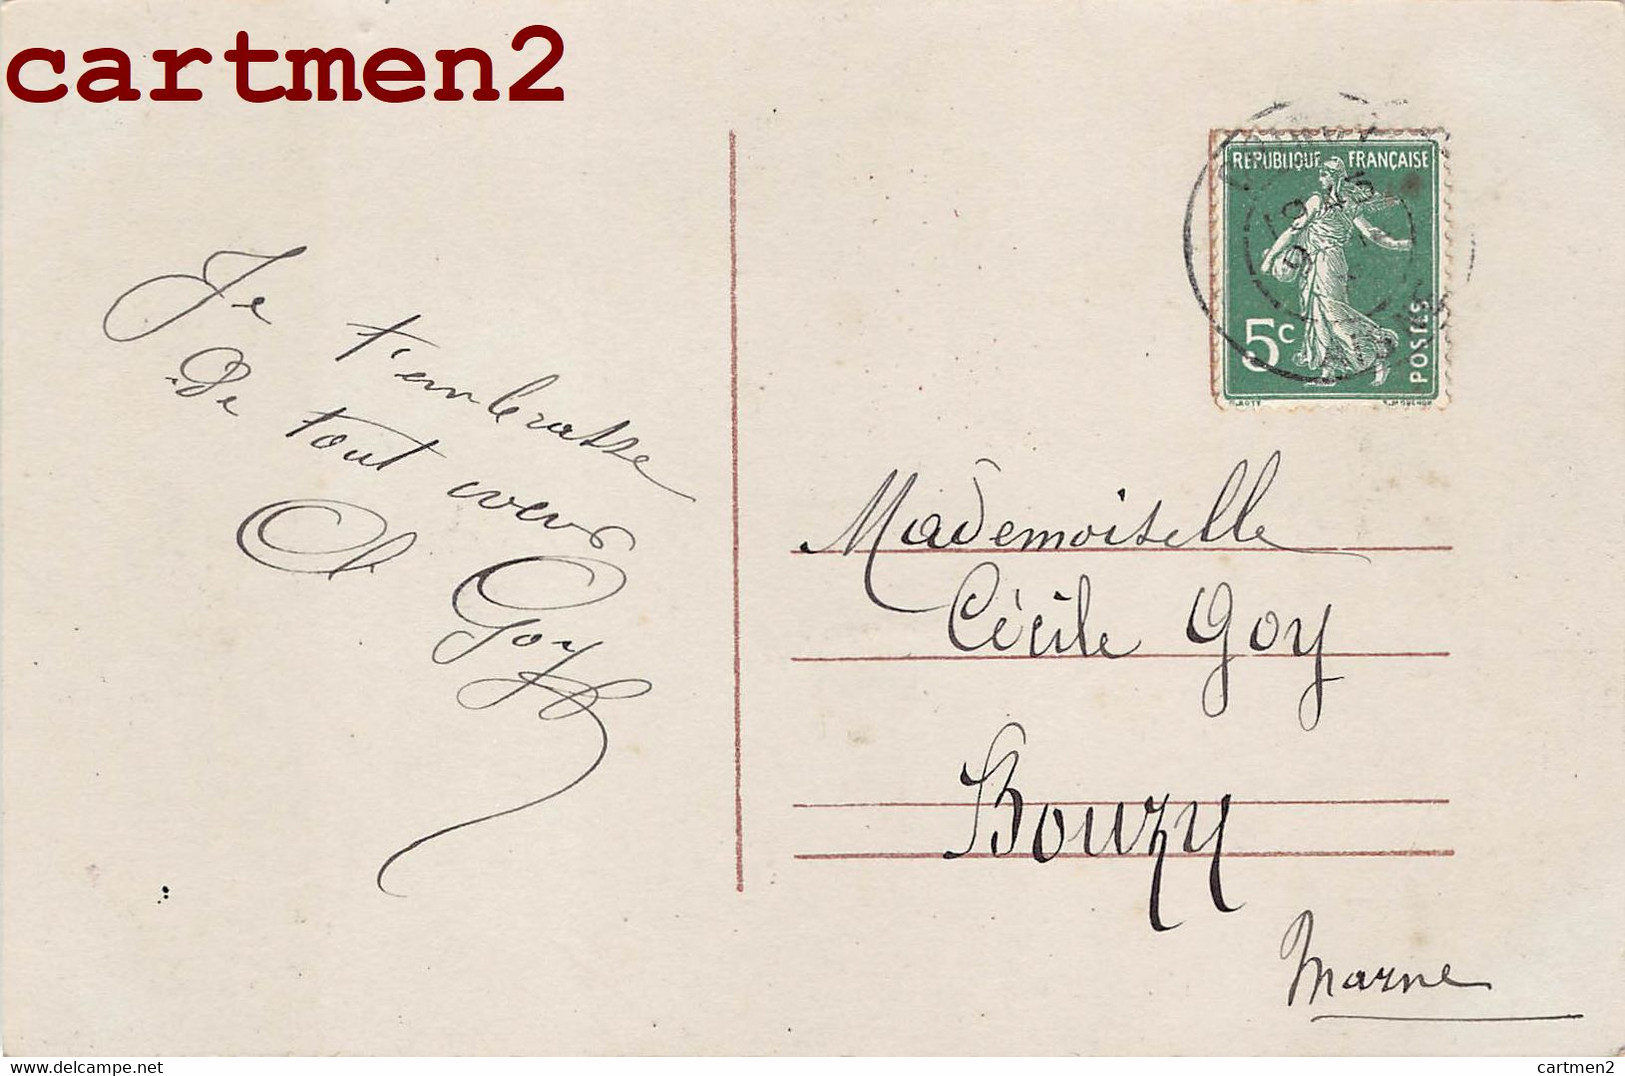 cartmen2
Je t'embrasse
De tout coeur
Ch Goy
REPUBLIQUE FRANÇAISE
5c
POSTES
Mademoiselle
Cécile Goy
Bouzy
Marne
cartmen2